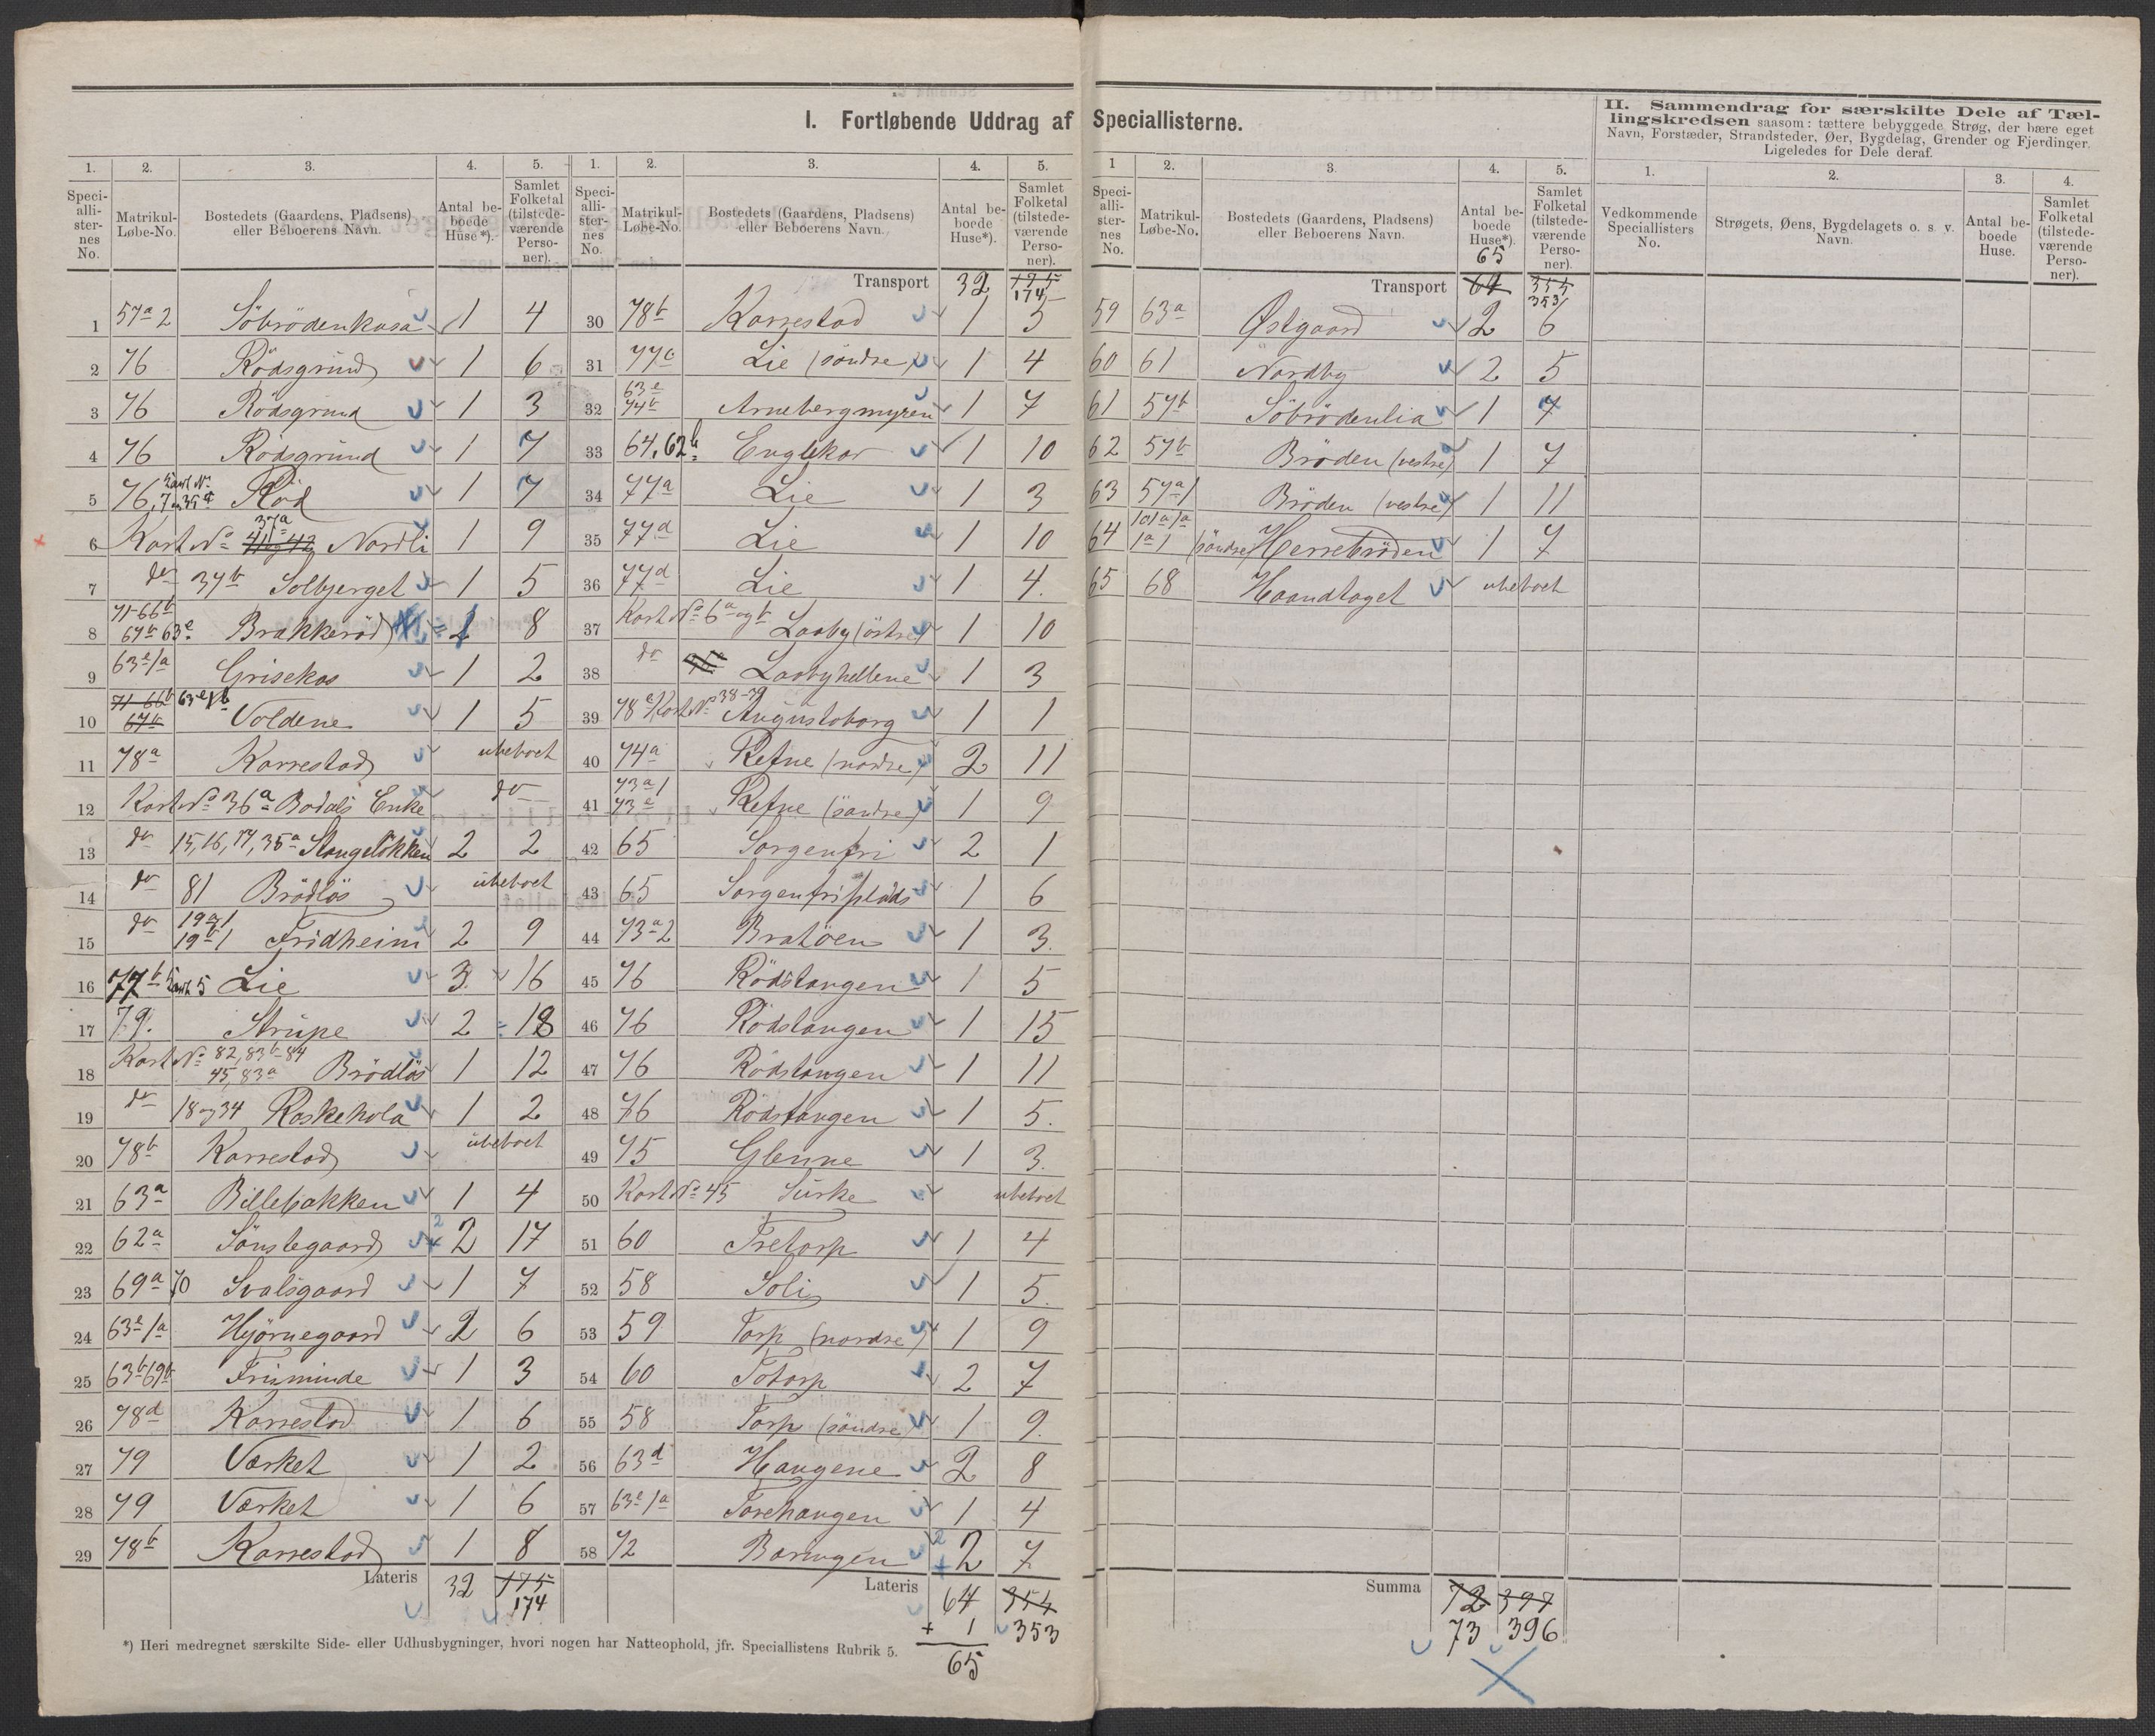 I. Fortløbende Uddrag af Speciallisterne.
II. Sammendrag for særskilte Dele af Tællingskredsen saasom: tættere bebyggede Strøg, der bære eget Navn, Forstæder, Strandsteder, Øer, Bygdelag, Grender og Fjerdinger. Ligeledes for Dele deraf.
1. 2. 3. 4. 5.
Speciallisternes No. Matrikul-Løbe-No. Bostedets (Gaardens, Pladsens) eller Beboerens Navn. Antal beboede Huse*). Samlet Folketal (tilstedeværende Personer).
1 57a2 Söbrödenkasa 1 4
2 76 Rödsgrund 1 6
3 76 Rödsgrund 1 3
4 76 Rödsgrund 1 7
5 76, Kart No. 7 35 Röd 1 7
6 Kart No 41 og 42 37a Nordli 1 9
7 do 37b Solbjerget 1 5
8 71-66b 67b 63e Brakkeröd 1 8
9 63e/1a Grisekas 1 2
10 71-66b 67b 63e/1b Voldene 1 5
11 78a Karrestad ubeboet
12 Kart No 36a Bodals Enke do
13 do 15,16,17,35a Stangelökken 2 2
14 do 81 Brödlös ubeboet
15 do 19a/1 19b/1 Fridheim 2 9
16 77b Kart 5 Lie 3 16
17 79. Strupe 2 18
18 Kart No 82, 83b-84 45, 83a Brödlös 1 12
19 do 18 og 34 Roskehola 1 2
20 78b Karrestad ubeboet
21 63a Billebakken 1 4
22 62a Sönslegaard 2 2 17
23 69a 70 Svalsgaard 1 7
24 63e/1a Hjörnegaard 2 6
25 63b 69b Friminde 1 3
26 78d Karrestad 1 6
27 79 Værket 1 2
28 79 Værket 1 6
29 78b Karrestad 1 8
Lateris 32 175
174
1. 2. 3. 4. 5.
Speciallisternes No. Matrikul-Løbe-No. Bostedets (Gaardens, Pladsens) eller Beboerens Navn. Antal beboede Huse*). Samlet Folketal (tilstedeværende Personer).
Transport 32 175 174
30 78b Karrestad 1 5
31 77c Lie (söndre) 1 4
32 63e 74b Arnebergmyren 1 7
33 64, 62b Englekor 1 10
34 77a Lie 1 3
35 77d Lie 1 10
36 77d Lie 1 4.
37 Kart No 6a og b Laaby (östre) 1 10
38 do Laabyhellene 1 3
39 78e Kart No 38-39 Augustoborg 1 1
40 74a Refne (nordre) 2 11
41 73a1 73c Refne (söndre) 1 9
42 65 Sorgenfri 2 1
43 65 Sorgenfriplads 1 6
44 73a2 Bratöen 1 3.
45 76 Rödstangen 1 5
46 76 Rödstangen 1 15
47 76 Rödstangen 1 11
48 76 Rödstangen 1 5.
49 75 Glenne 1 3.
50 Kart No 45 Surke ubeboet
51 60 Tretorp 1 4
52 58 Soli 1 5.
53 59 Torp (nordre) 1 9
54 60 Totorp 2 7
55 58 Torp (söndre) 1 9.
56 63d Haugene 2 8
57 63e/1a Torehaugen 1 4
58 72 Barngen 2 2 7
Lateris 64 354
+ 1 353
65
*) Heri medregnet særskilte Side- eller Udhusbygninger, hvori nogen har Natteophold, jfr. Speciallistens Rubrik 5.
1 2. 3. 4. 5.
Speciallisternes No. Matrikul-Løbe-No. Bostedets (Gaardens, Pladsens) eller Beboerens Navn. Antal beboede Huse*). Samlet Folketal (tilstedeværende Personer).
65
Transport 64 354 353
59 63a Østgaard 2 6
60 61 Nordby 2 5
61 57b Söbrödenlia 1 7
62 57b Bröden (vestre) 1 7
63 57a1 Bröden (vestre) 1 11
64 101a/1a 1a1 (söndre) Herrebröden 1 7
65 68 Haandtaget ubeboet
Summa 72 397
73 396
1. 2. 3. 4.
Vedkommende Speciallisters No. Strøgets, Øens, Bygdelagets o. s. v. Navn. Antal beboede Huse. Samlet Folketal (tilstedeværende Personer).